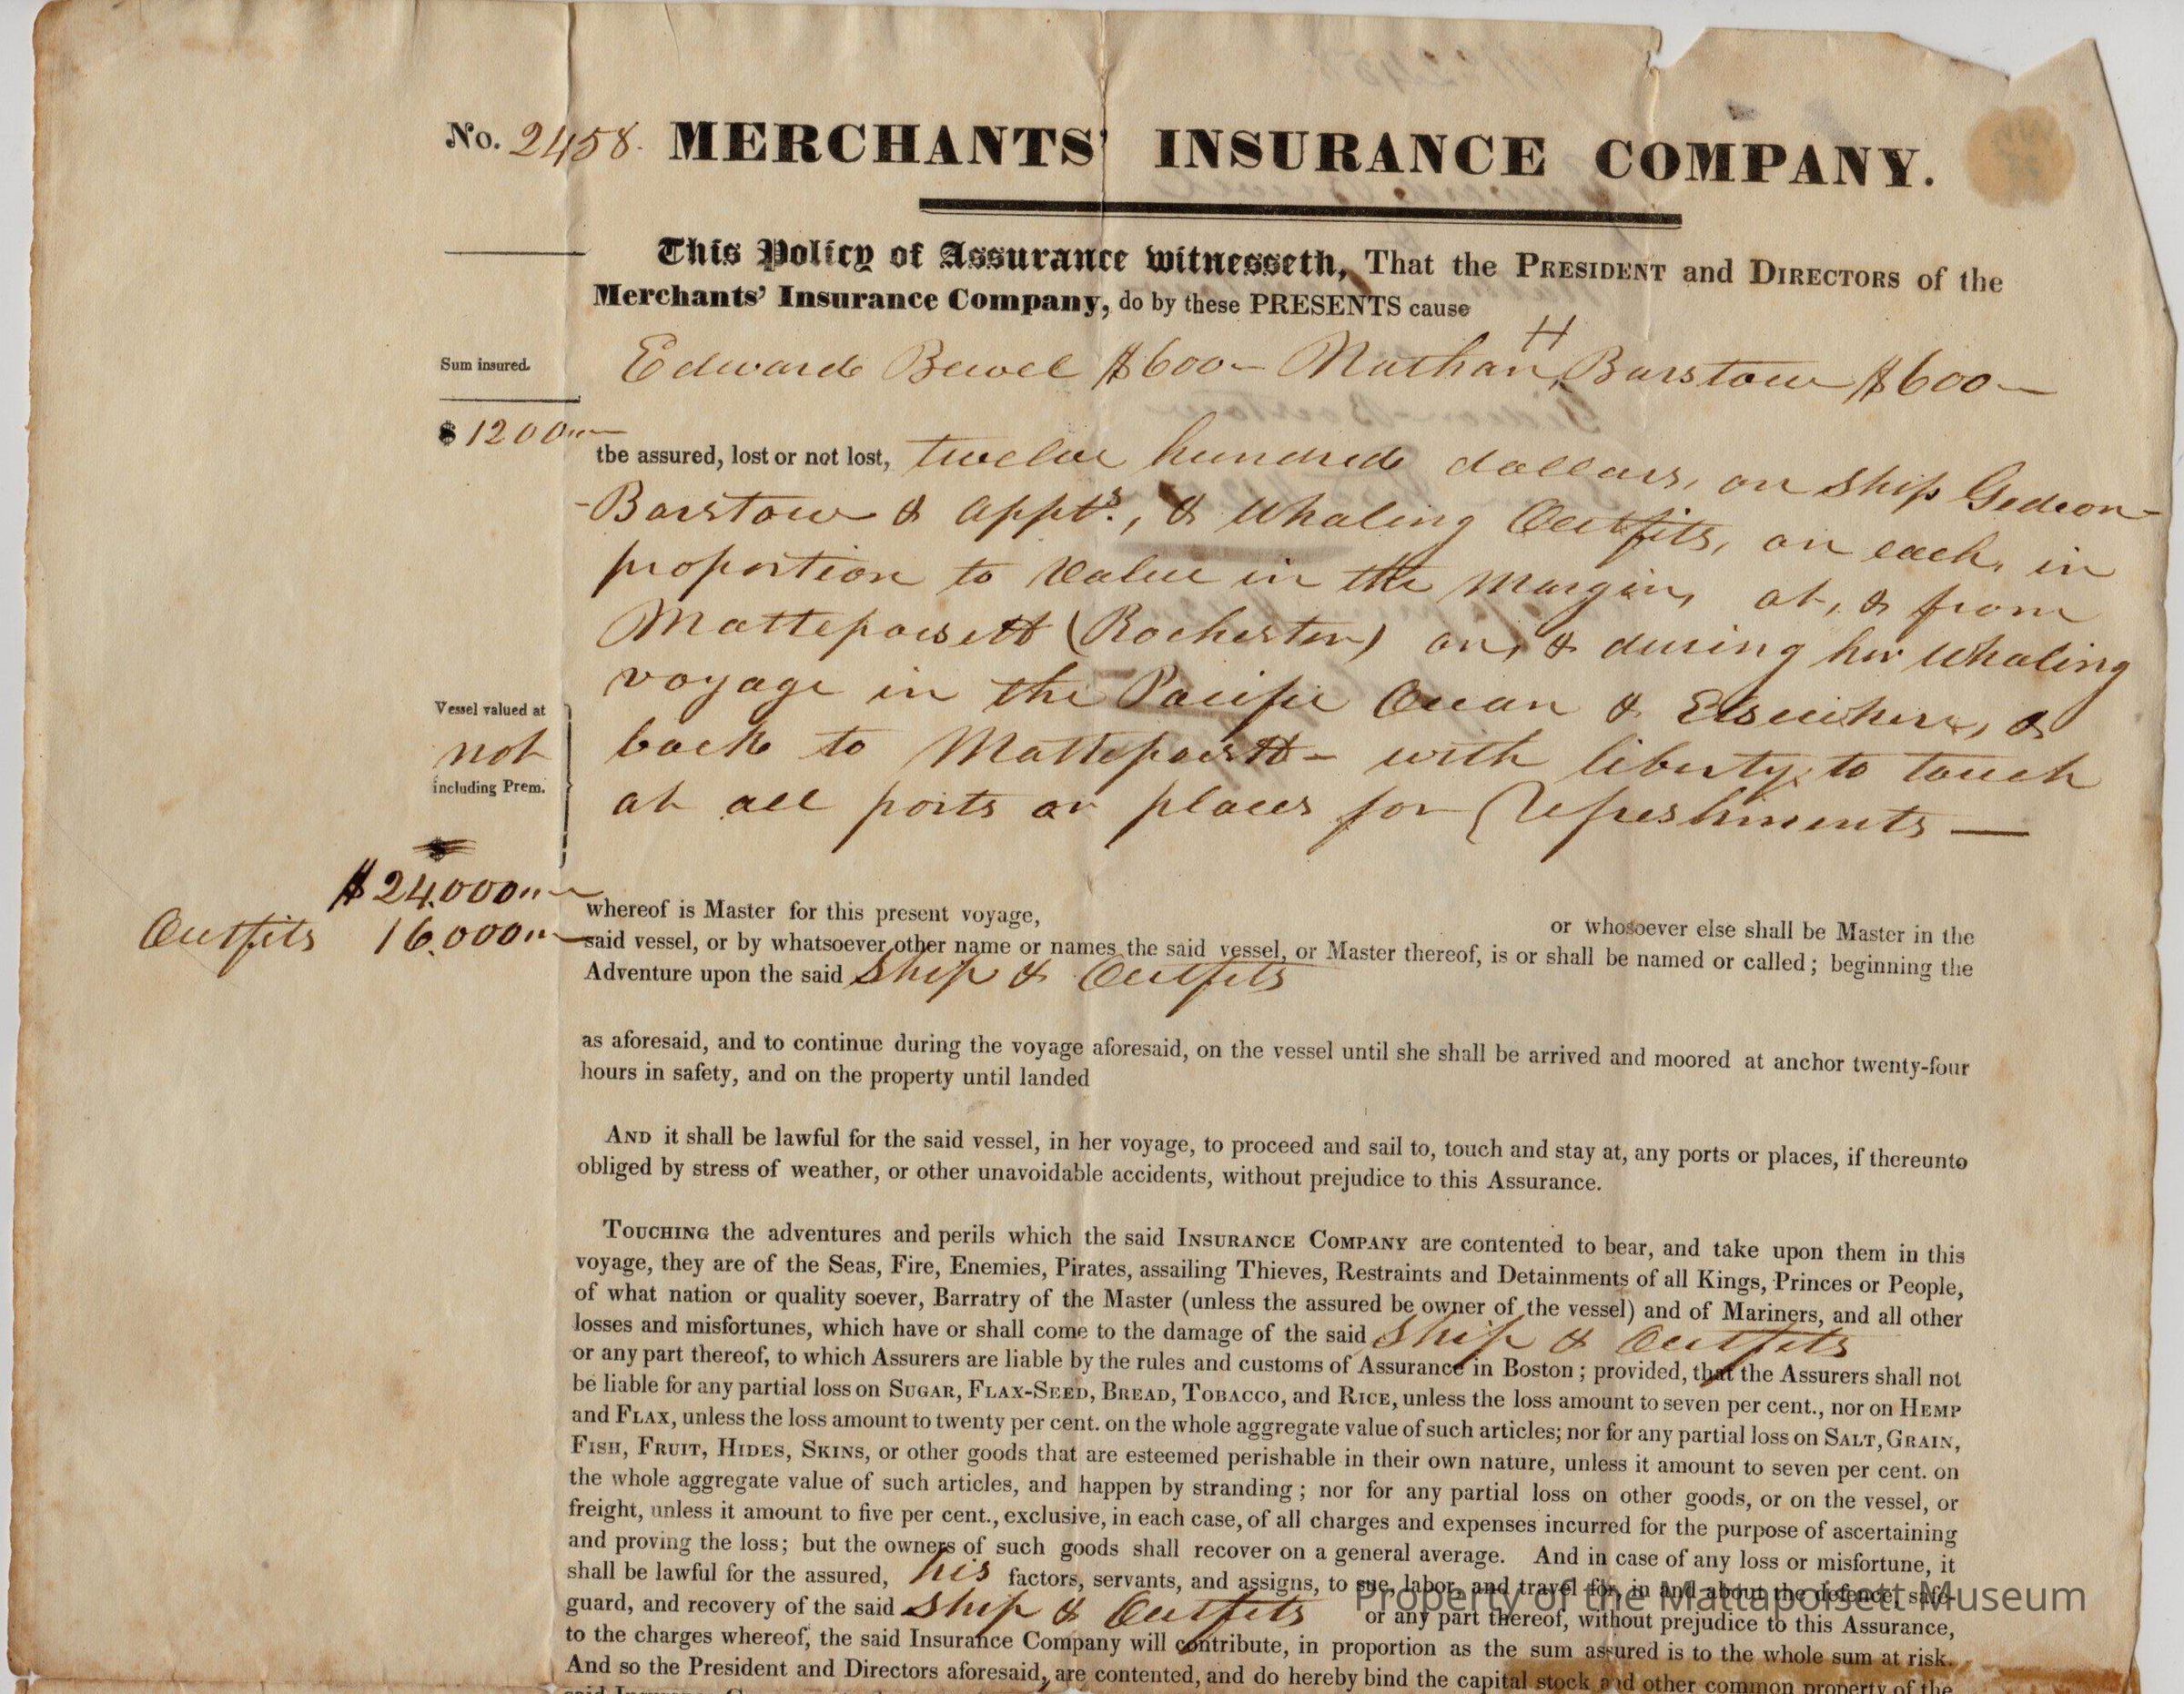 No. 2458. MERCHANTS' INSURANCE COMPANY.
This Policy of Assurance witnesseth, That the PRESIDENT and DIRECTORS of the
Merchants' Insurance Company, do by these PRESENTS cause
Sum insured.
Edward Bewel $600 — Nathan H Barstow $600 —
$ 1200
the assured, lost or not lost, twelve hundred dollars, on Ship Gedeon
Barstow & appts., & Whaling Outfits, on each, in
proportion to Value in the Margin, at, & from
Mattepoisett (Rochester) on, & during her Whaling
voyage in the Pacific Ocean & Elsewhere, &
back to Mattepoisett - with liberty to touch
at all ports or places for Refreshments —
Vessel valued at
not
including Prem.
$24,000
Outfits 16,000
whereof is Master for this present voyage, or whosoever else shall be Master in the
said vessel, or by whatsoever other name or names the said vessel, or Master thereof, is or shall be named or called; beginning the
Adventure upon the said Ship & Outfits
as aforesaid, and to continue during the voyage aforesaid, on the vessel until she shall be arrived and moored at anchor twenty-four
hours in safety, and on the property until landed
AND it shall be lawful for the said vessel, in her voyage, to proceed and sail to, touch and stay at, any ports or places, if thereunto
obliged by stress of weather, or other unavoidable accidents, without prejudice to this Assurance.
TOUCHING the adventures and perils which the said INSURANCE COMPANY are contented to bear, and take upon them in this
voyage, they are of the Seas, Fire, Enemies, Pirates, assailing Thieves, Restraints and Detainments of all Kings, Princes or People,
of what nation or quality soever, Barratry of the Master (unless the assured be owner of the vessel) and of Mariners, and all other
losses and misfortunes, which have or shall come to the damage of the said Ship & Outfits
or any part thereof, to which Assurers are liable by the rules and customs of Assurance in Boston; provided, that the Assurers shall not
be liable for any partial loss on SUGAR, FLAX-SEED, BREAD, TOBACCO, and RICE, unless the loss amount to seven per cent., nor on HEMP
and FLAX, unless the loss amount to twenty per cent. on the whole aggregate value of such articles; nor for any partial loss on SALT, GRAIN,
FISH, FRUIT, HIDES, SKINS, or other goods that are esteemed perishable in their own nature, unless it amount to seven per cent. on
the whole aggregate value of such articles, and happen by stranding; nor for any partial loss on other goods, or on the vessel, or
freight, unless it amount to five per cent., exclusive, in each case, of all charges and expenses incurred for the purpose of ascertaining
and proving the loss; but the owners of such goods shall recover on a general average. And in case of any loss or misfortune, it
shall be lawful for the assured, his factors, servants, and assigns, to sue, labor, and travel for, in and about the defence, safe-
guard, and recovery of the said Ship & Outfits or any part thereof, without prejudice to this Assurance,
Property of the Mattapoisett Museum
to the charges whereof, the said Insurance Company will contribute, in proportion as the sum assured is to the whole sum at risk.
And so the President and Directors aforesaid, are contented, and do hereby bind the capital stock and other common property of the